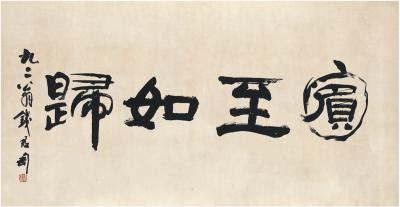 賓至如歸
九二翁錢君匋